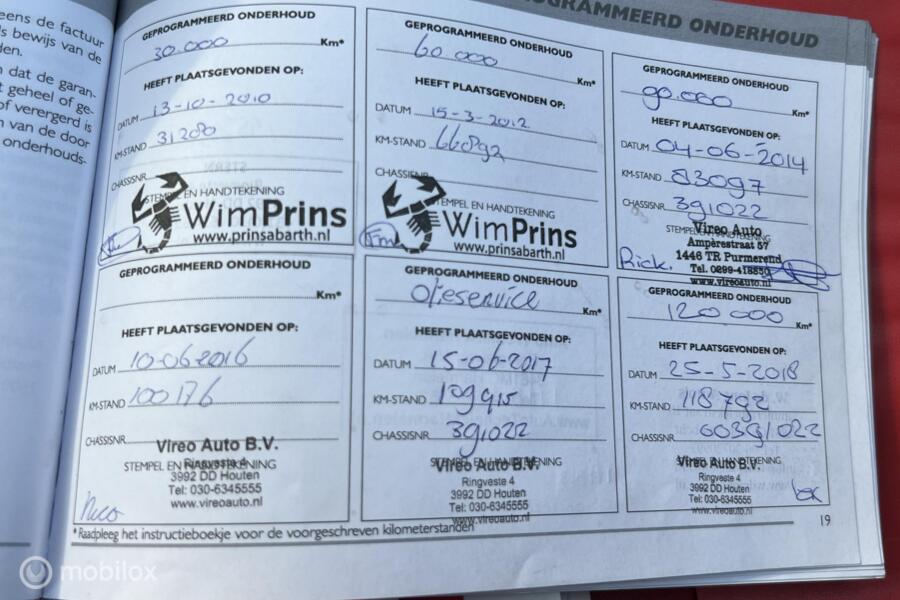 eens de factuur
s bewijs van de
den.
dat de garan-
geheel of ge-
of verergerd is
n van de door
onderhouds-
OGRAMMEERD ONDERHOUD
GEPROGRAMMEERD ONDERHOUD
30.000 Km*
HEEFT PLAATSGEVONDEN OP:
DATUM 13-10-2010
KM-STAND 31200
CHASSISNR.
STEMPEL EN HANDTEKENING
WimPrins
www.prinsabarth.nl
GEPROGRAMMEERD ONDERHOUD
60.000 Km*
HEEFT PLAATSGEVONDEN OP:
DATUM 15-3-2012
KM-STAND 66892
CHASSISNR.
STEMPEL EN HANDTEKENING
WimPrins
www.prinsabarth.nl
GEPROGRAMMEERD ONDERHOUD
90.000 Km*
HEEFT PLAATSGEVONDEN OP:
DATUM 04-06-2014
KM-STAND 83097
CHASSISNR. 391022
STEMPEL EN HANDTEKENING
Vireo Auto
Ampèrestraat 57
1446 TR Purmerend
Rick. Tel. 0299-418850
www.vireoauto.nl
GEPROGRAMMEERD ONDERHOUD
Km*
HEEFT PLAATSGEVONDEN OP:
DATUM 10-062016
KM-STAND 100176
CHASSISNR.
Vireo Auto B.V.
STEMPEL EN HANDTEKENING
Ringveste 4
3992 DD Houten
Tel: 030-6345555
www.vireoauto.nl
Nico
GEPROGRAMMEERD ONDERHOUD
olieservice Km*
HEEFT PLAATSGEVONDEN OP:
DATUM 15-06-2017
KM-STAND 109915
CHASSISNR. 391022
STEMPEL EN HANDTEKENING
Vireo Auto B.V.
Ringveste 4
3992 DD Houten
Tel: 030-6345555
www.vireoauto.nl
GEPROGRAMMEERD ONDERHOUD
120.000 Km*
HEEFT PLAATSGEVONDEN OP:
DATUM 25-5-2018
KM-STAND 118792
CHASSISNR.
STEMPEL EN HANDTEKENING
Vireo Auto B.V.
Ringveste 4
3992 DD Houten
Tel: 030-6345555
www.vireoauto.nl
* Raadpleeg het instructieboekje voor de voorgeschreven kilometerstanden
19
mobilox